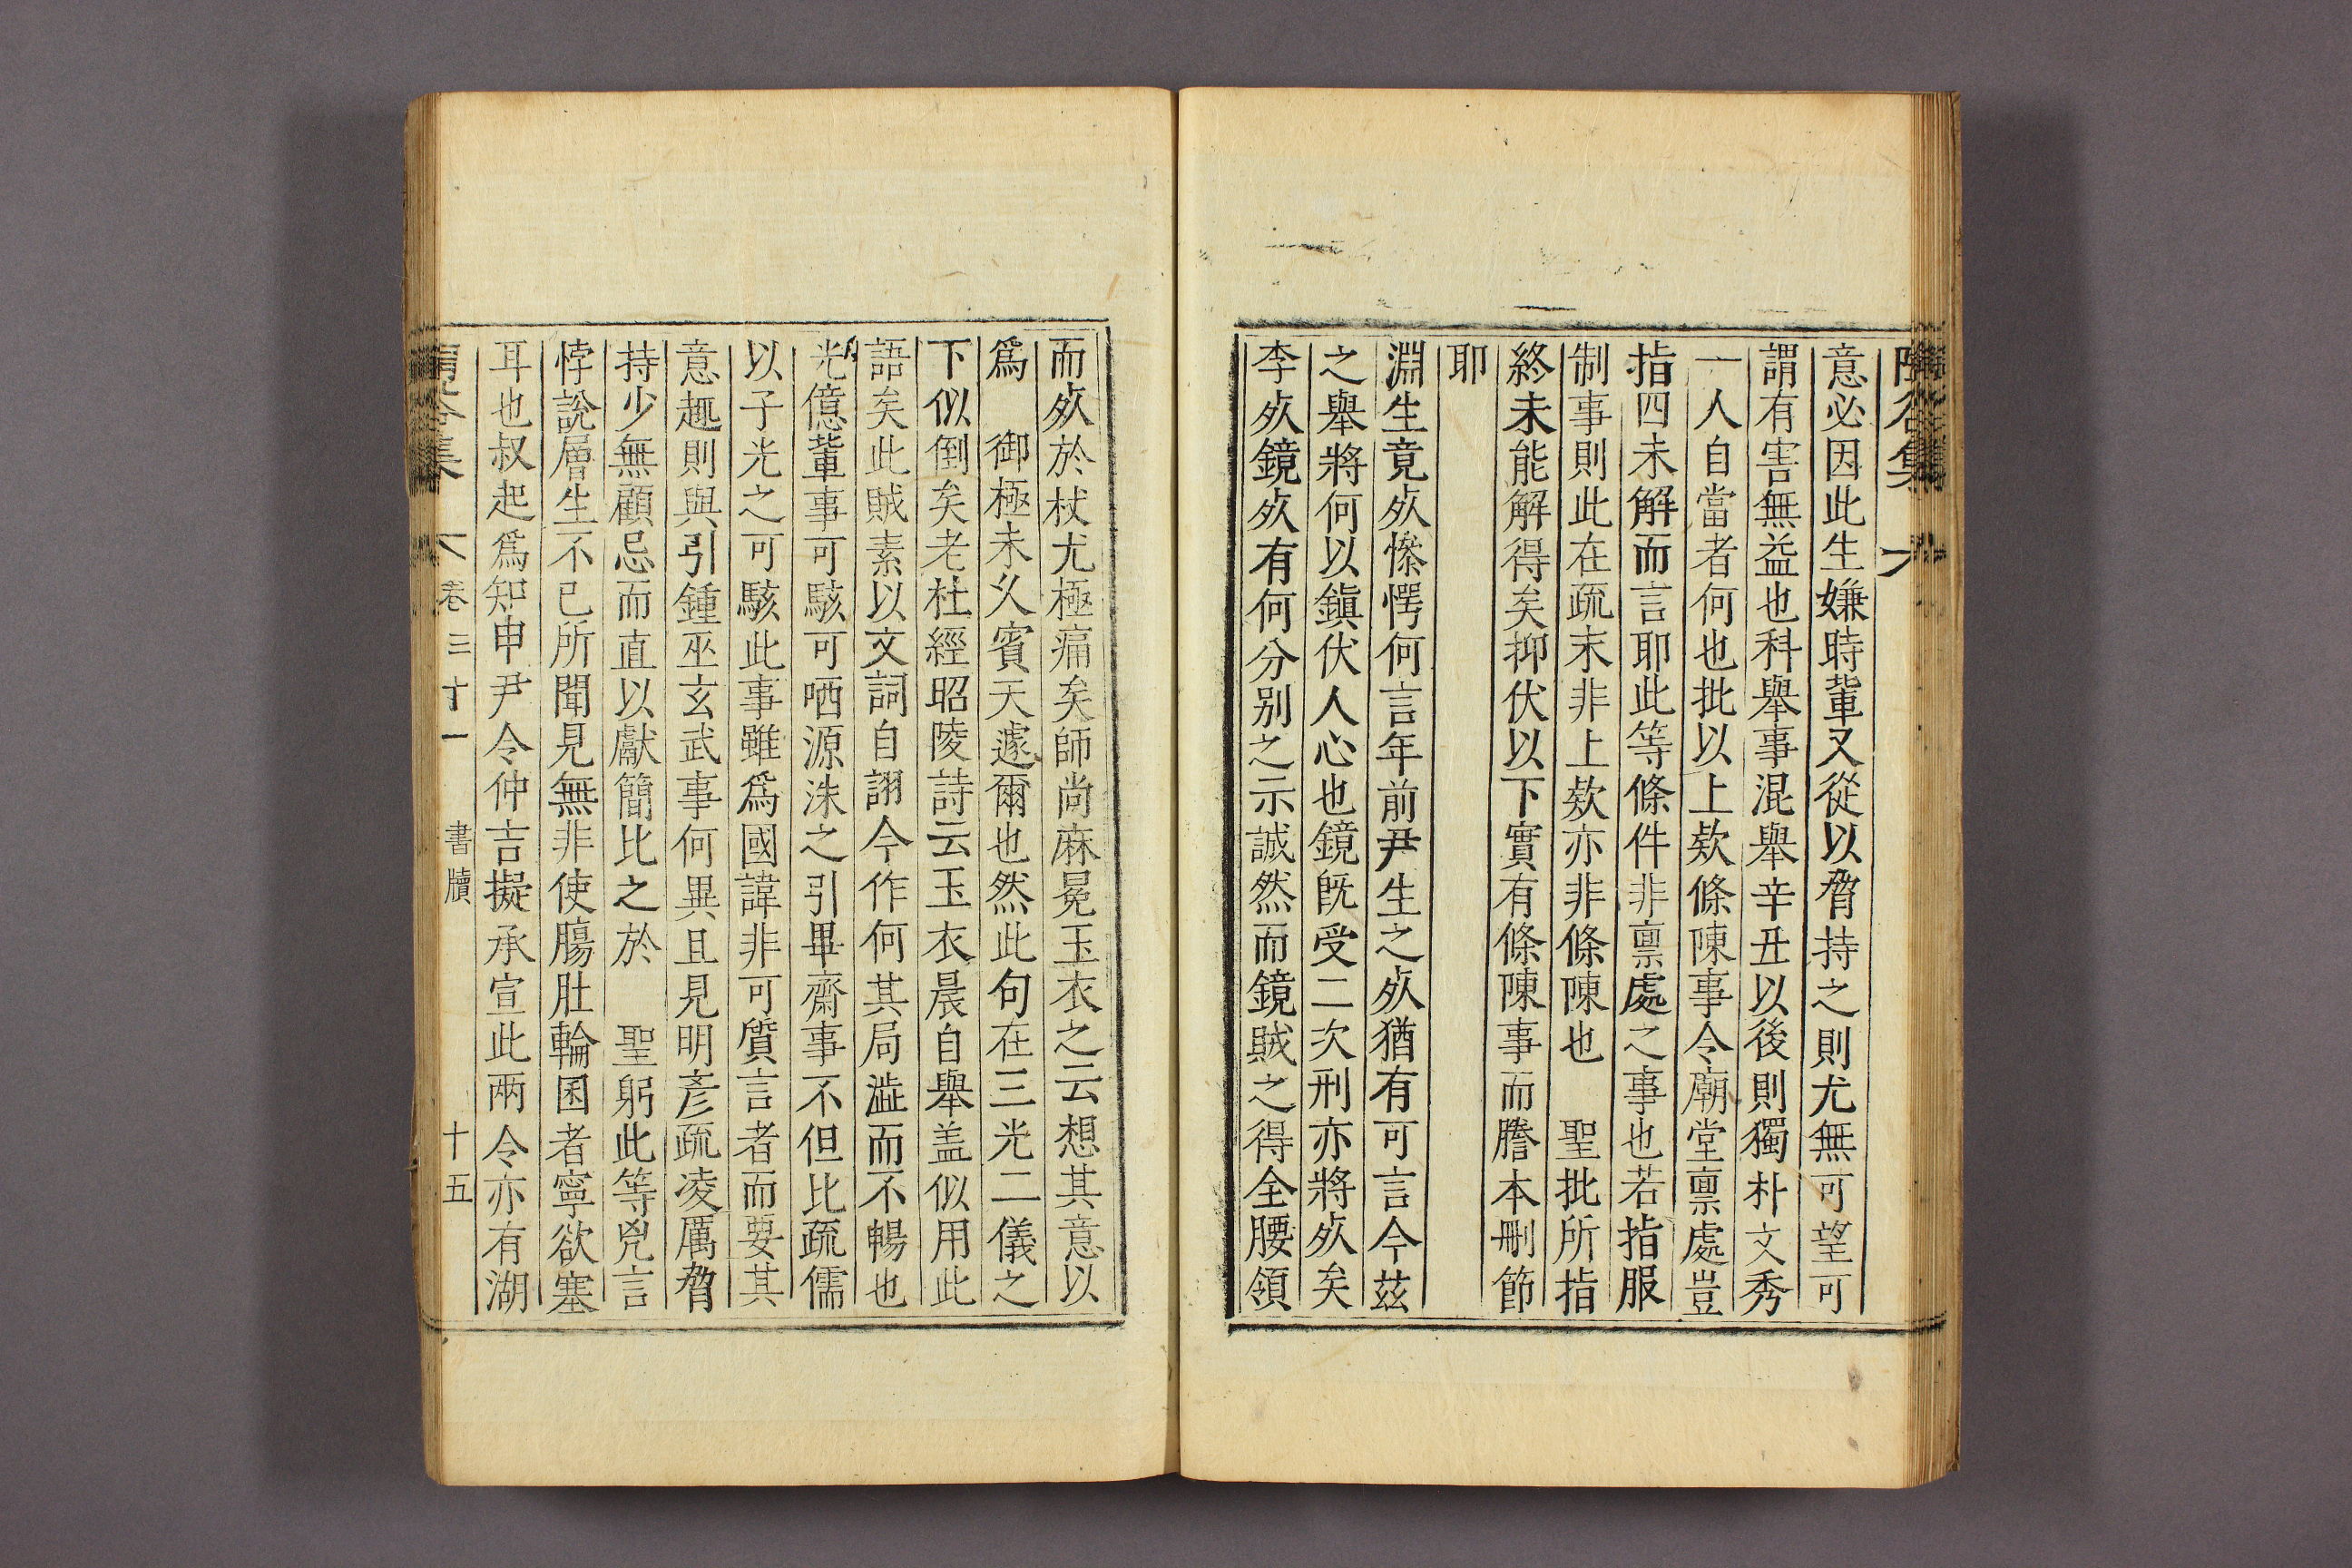 意必因此生嫌時輩又從以脅持之則尤無可望可
謂有害無益也科擧事混擧辛丑以後則獨朴文秀
一人自當者何也批以上欵條陳事令廟堂禀處豈
指四未解而言耶此等條件非禀處之事也若指服
制事則此在疏末非上欵亦非條陳也 聖批所指
終未能解得矣抑伏以下實有條陳事而謄本刪節
耶
淵生竟㱡慘愕何言年前尹生之㱡猶有可言今茲
之擧將何以鎭伏人心也鏡旣受二次刑亦將㱡矣
李㱡鏡㱡有何分別之示誠然而鏡賊之得全腰領
而㱡於杖尤極痛矣師尚麻冕玉衣之云想其意以
爲 御極未久賓天遽爾也然此句在三光二儀之
下似倒矣老杜經昭陵詩云玉衣晨自擧盖似用此
語矣此賊素以文詞自詡今作何其局澁而不暢也
光億輩事可駭可哂源洙之引畢齋事不但比疏儒
以子光之可駭此事雖爲國諱非可質言者而要其
意趣則與引鍾巫玄武事何異且見明彥疏凌厲脅
持少無顧忌而直以獻簡比之於 聖躬此等兇言
悖說層生不已所聞見無非使膓肚輪囷者寧欲塞
耳也叔起爲知申尹令仲吉擬承宣此兩令亦有湖
集 卷三十一 書牘 十五